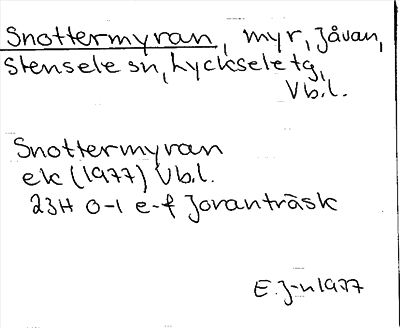 Snottermyran, myr, Jåvan,
Stensele sn, Lycksele tg,
Vb.l.
Snottermyran
ek (1977) Vb.l.
23H 0-1 e-f Joranträsk
E. J-n 1977